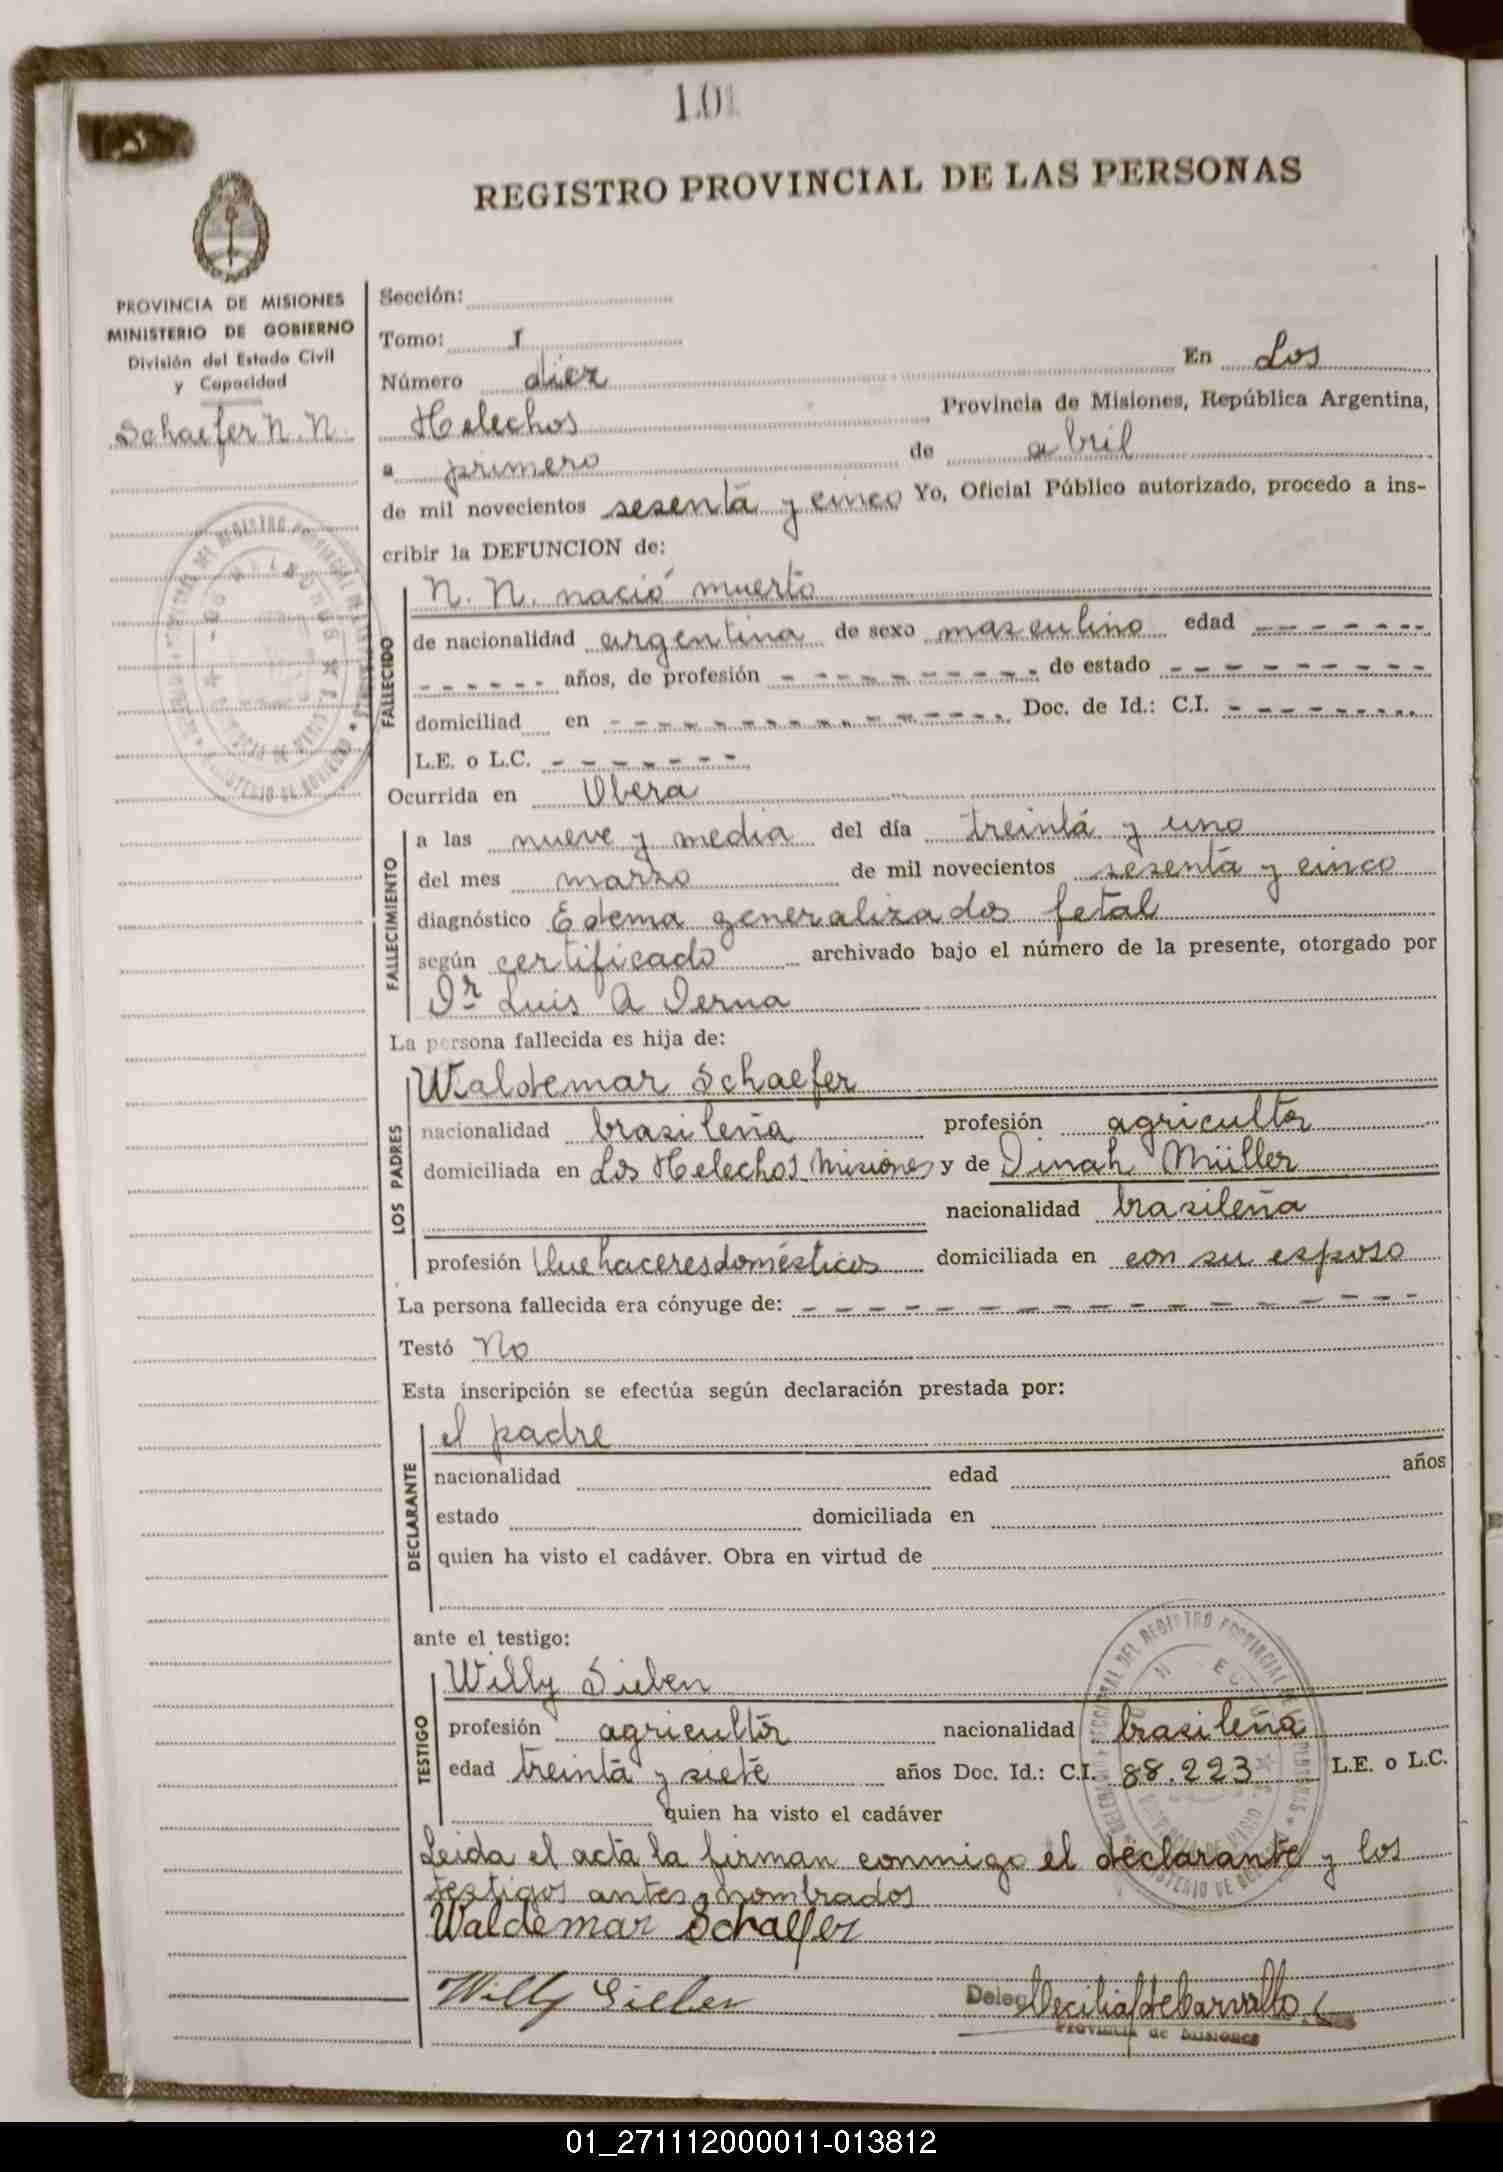 101
REGISTRO PROVINCIAL DE LAS PERSONAS
PROVINCIA DE MISIONES
MINISTERIO DE GOBIERNO
División del Estado Civil
y Capacidad
Schaefer N. N.
Sección:
Tomo: I
Número diez En Los
Helechos Provincia de Misiones, República Argentina,
a primero de abril
de mil novecientos sesenta y cinco Yo, Oficial Público autorizado, procedo a ins-
cribir la DEFUNCION de:
FALLECIDO
N. N. nació muerto
de nacionalidad argentina de sexo masculino edad
años, de profesión de estado
domiciliad en Doc. de Id.: C.I.
L.E. o L.C.
Ocurrida en Obera
FALLECIMIENTO
a las nueve y media del día treinta y uno
del mes marzo de mil novecientos sesenta y cinco
diagnóstico Edema generalizados fetal
según certificado archivado bajo el número de la presente, otorgado por
Dr Luis A Derna
La persona fallecida es hija de:
LOS PADRES
Waldemar Schaefer
nacionalidad brasileña profesión agricultor
domiciliada en Los Helechos Misiones y de Dinah Müller
nacionalidad brasileña
profesión Quehaceres domésticos domiciliada en con su esposo
La persona fallecida era cónyuge de:
Testó No
Esta inscripción se efectúa según declaración prestada por:
DECLARANTE
el padre
nacionalidad edad años
estado domiciliada en
quien ha visto el cadáver. Obra en virtud de
ante el testigo:
TESTIGO
Willy Sieben
profesión agricultor nacionalidad brasileña
edad treinta y siete años Doc. Id.: C.I. 88.223 L.E. o L.C.
quien ha visto el cadáver
Leida el acta la firman conmigo el declarante y los
testigos antes nombrados
Waldemar Schaefer
Willy Sieben
Provincia de Misiones
01_271112000011-013812